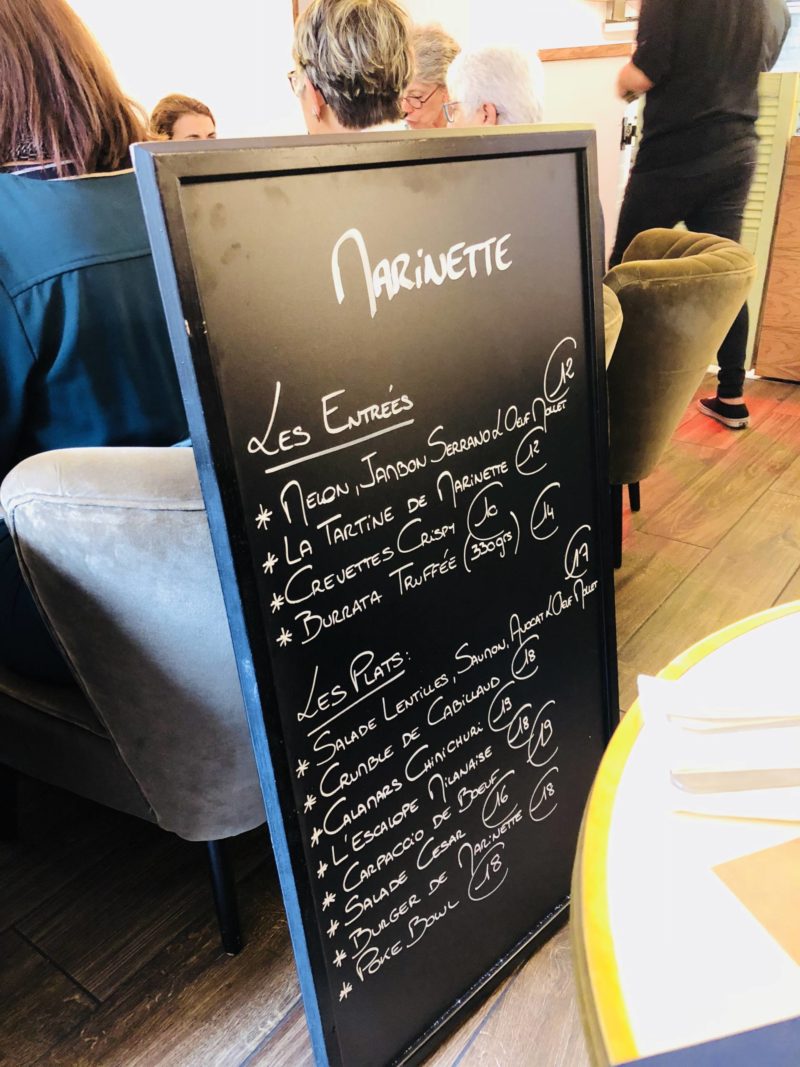 Marinette
Les Entrées
* Melon, Jambon Serrano & Oeuf Mollet 12
* La Tartine de Marinette 12
* Crevettes Crispy 10
* Burrata Truffée (330grs) 14
Les Plats:
* Salade Lentilles, Saumon, Avocat & Oeuf Mollet 17
* Crumble de Cabillaud 18
* Calamars Chimichuri 19
* L'Escalope Milanaise 18
* Carpaccio de Boeuf 19
* Salade Cesar 16
* Burger de Marinette 18
* Poke Bowl 18